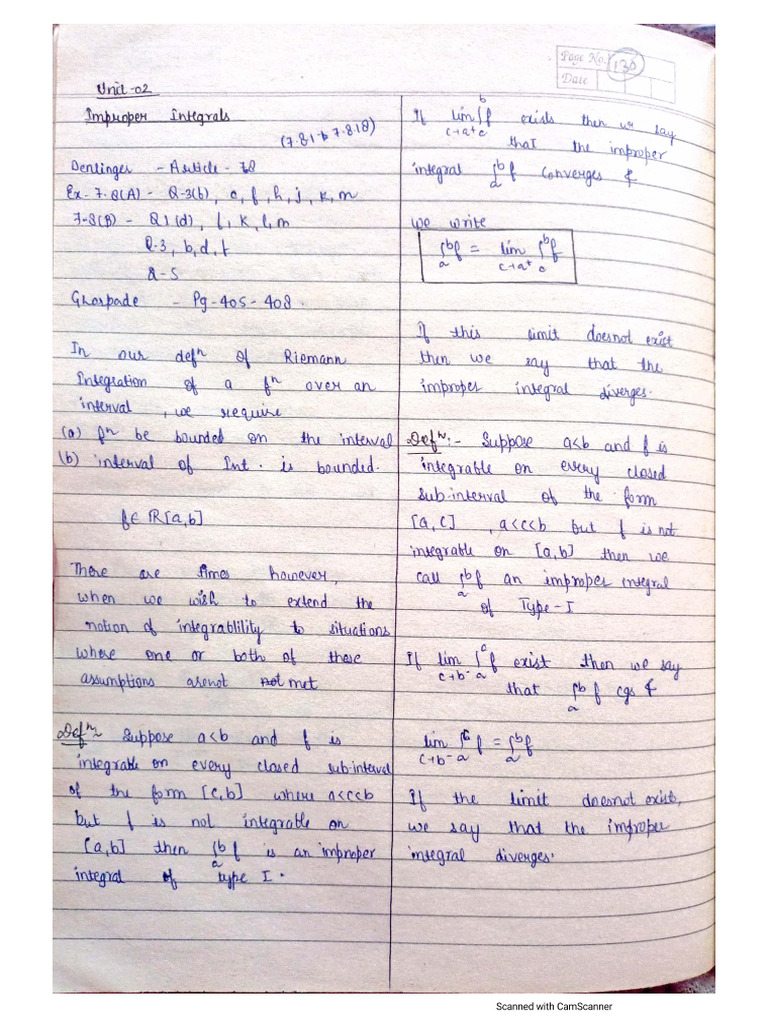 Page No. 130
Date
Unit-02
Improper Integrals
(7.8.1 to 7.8.18)
Denlinger - Article - 7.8
Ex. 7.8(A) - Q-3(b), c, f, h, j, k, m
7.8(B) - Q1(d), k, l, m
Q-3, b, d, f
Q-5
Ghorpade - Pg-405-408.
In our defⁿ of Riemann
Integration of a fⁿ over an
interval, we require
(a) fⁿ be bounded on the interval
(b) interval of Int. is bounded.
f∈ R[a,b]
There are times however,
when we wish to extend the
notion of integrablility to situations
where one or both of these
assumptions arenot met
Defⁿ:- Suppose a<b and f is
integrable on every closed sub-interval
of the form [c,b] where a<c<b
but f is not integrable on
[a,b] then ∫ₐᵇf is an improper
integral of type I.
If lim c→a⁺ ∫_c^b f exists then we say
that the improper
integral ∫ₐᵇ f converges &
we write
∫ₐᵇf = lim c→a⁺ ∫_c^b f
If this limit doesnot exist
then we say that the
improper integral diverges.
Defⁿ:- Suppose a<b and f is
integrable on every closed
sub-interval of the form
[a,c], a<c<b but f is not
integrable on [a,b] then we
call ∫ₐᵇf an improper integral
of Type-I
If lim c→b⁻ ∫ₐᶜ f exist then we say
that ∫ₐᵇ f cgs &
lim c→b⁻ ∫ₐᶜ f = ∫ₐᵇf
If the limit doesnot exists,
we say that the improper
integral diverges.
Scanned with CamScanner